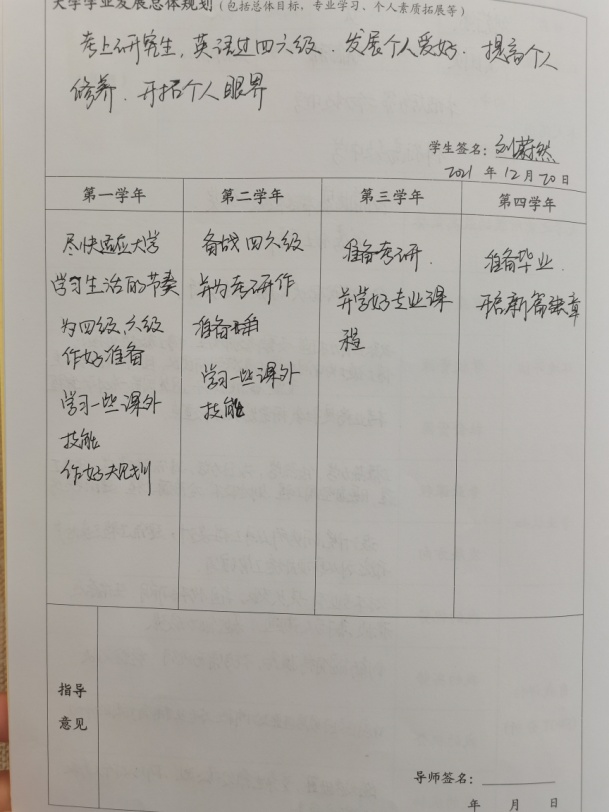 大学学业发展总体规划(包括总体目标,专业学习、个人素质拓展等)
考上研究生,英语过四六级.发展个人爱好.提高个人
修养.开拓个人眼界
学生签名:刘蔚然
2021 年 12 月 20 日
第一学年 第二学年 第三学年 第四学年
尽快适应大学
学习生活的节奏
为四级、六级
作好准备
学习一些课外
技能
作好规划
备战四六级
并为考研作
准备
学习一些课外
技能
准备考研.
并学好专业课
程
准备毕业.
开启新篇章
指导
意见
导师签名:
年 月 日